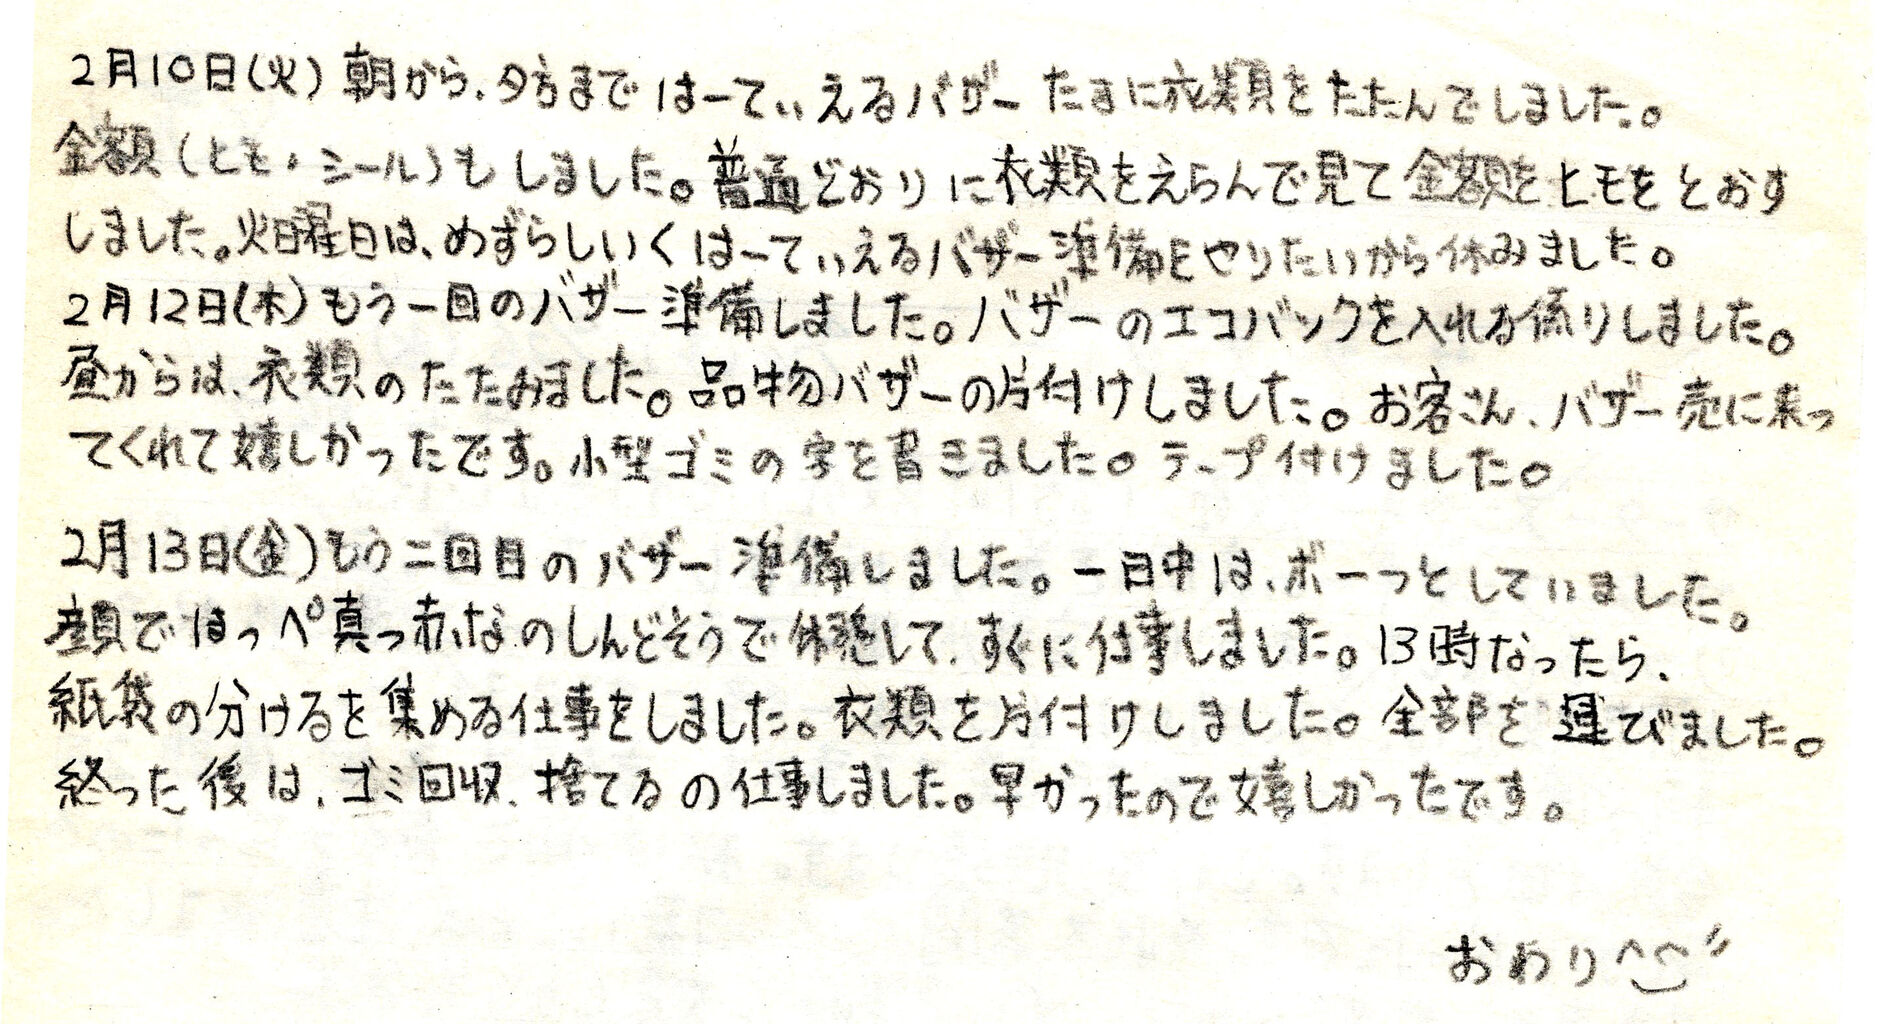 2月10日(火) 朝から、夕方まで はーてぃえるバザー たまに衣類をたたんでしました。
金額(ヒモ・シール)もしました。普通どおりに衣類をえらんで見て金額をヒモをとおす
しました。火曜日は、めずらしいくはーてぃえるバザー準備をやりたいから休みました。
2月12日(木)もう一回のバザー準備しました。バザーのエコバックを入れる係りしました。
昼からは、衣類のたたみました。品物バザーの片付けしました。お客さん、バザー売に来っ
てくれて嬉しかったです。小型ゴミの字を書きました。テープ付けました。
2月13日(金)もう二回目のバザー準備しました。一日中は、ボーっとしていました。
顔でほっぺ真っ赤なのしんどそうで休憩して、すぐに仕事しました。13時なったら、
紙袋の分けるを集める仕事をしました。衣類を片付けしました。全部を運びました。
終った後は、ゴミ回収、捨てるの仕事しました。早かったので嬉しかったです。
おわり^^